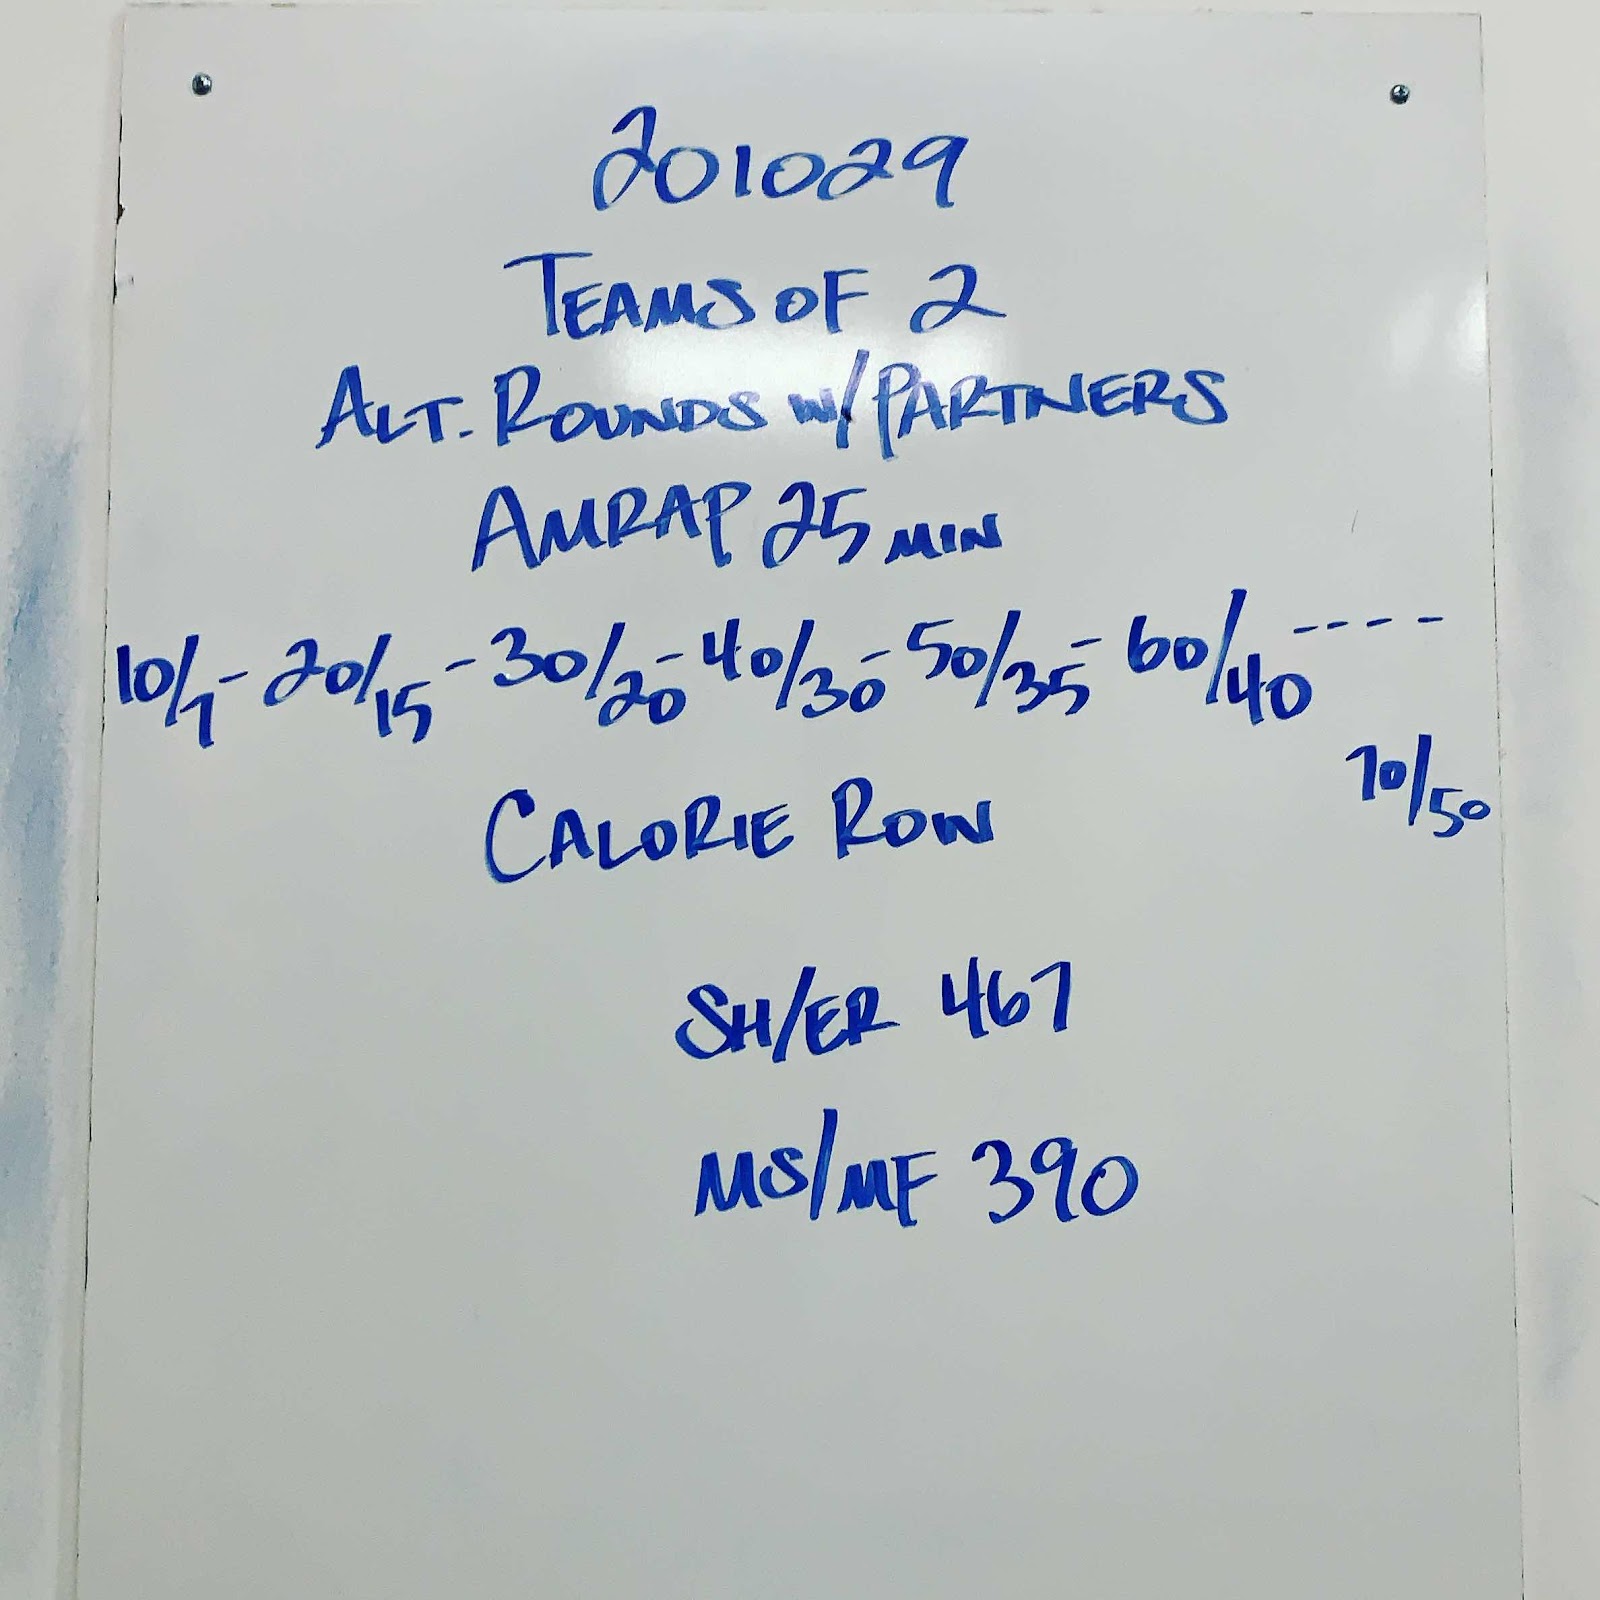 201029
TEAMS OF 2
ALT. ROUNDS W/PARTNERS
AMRAP 25 MIN
10/7-20/15-30/20-40/30-50/35-60/40----
70/50
CALORIE ROW
SH/ER 467
MS/MF 390